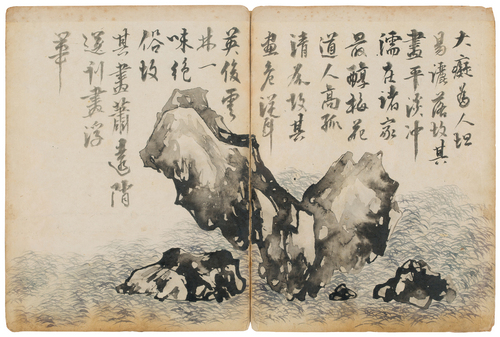 大癡為人坦
易灑落故其
畫平淡冲
濡在諸家
最醇梅花
道人高孤
清介故其
畫危聳
英俊雲
林一
味絕
俗故
其畫蕭遠
華